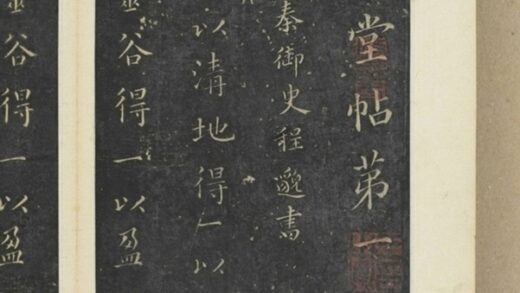 堂帖苐一
秦御史程邈書
以清地得一以
谷得一以盈
谷得一以盈